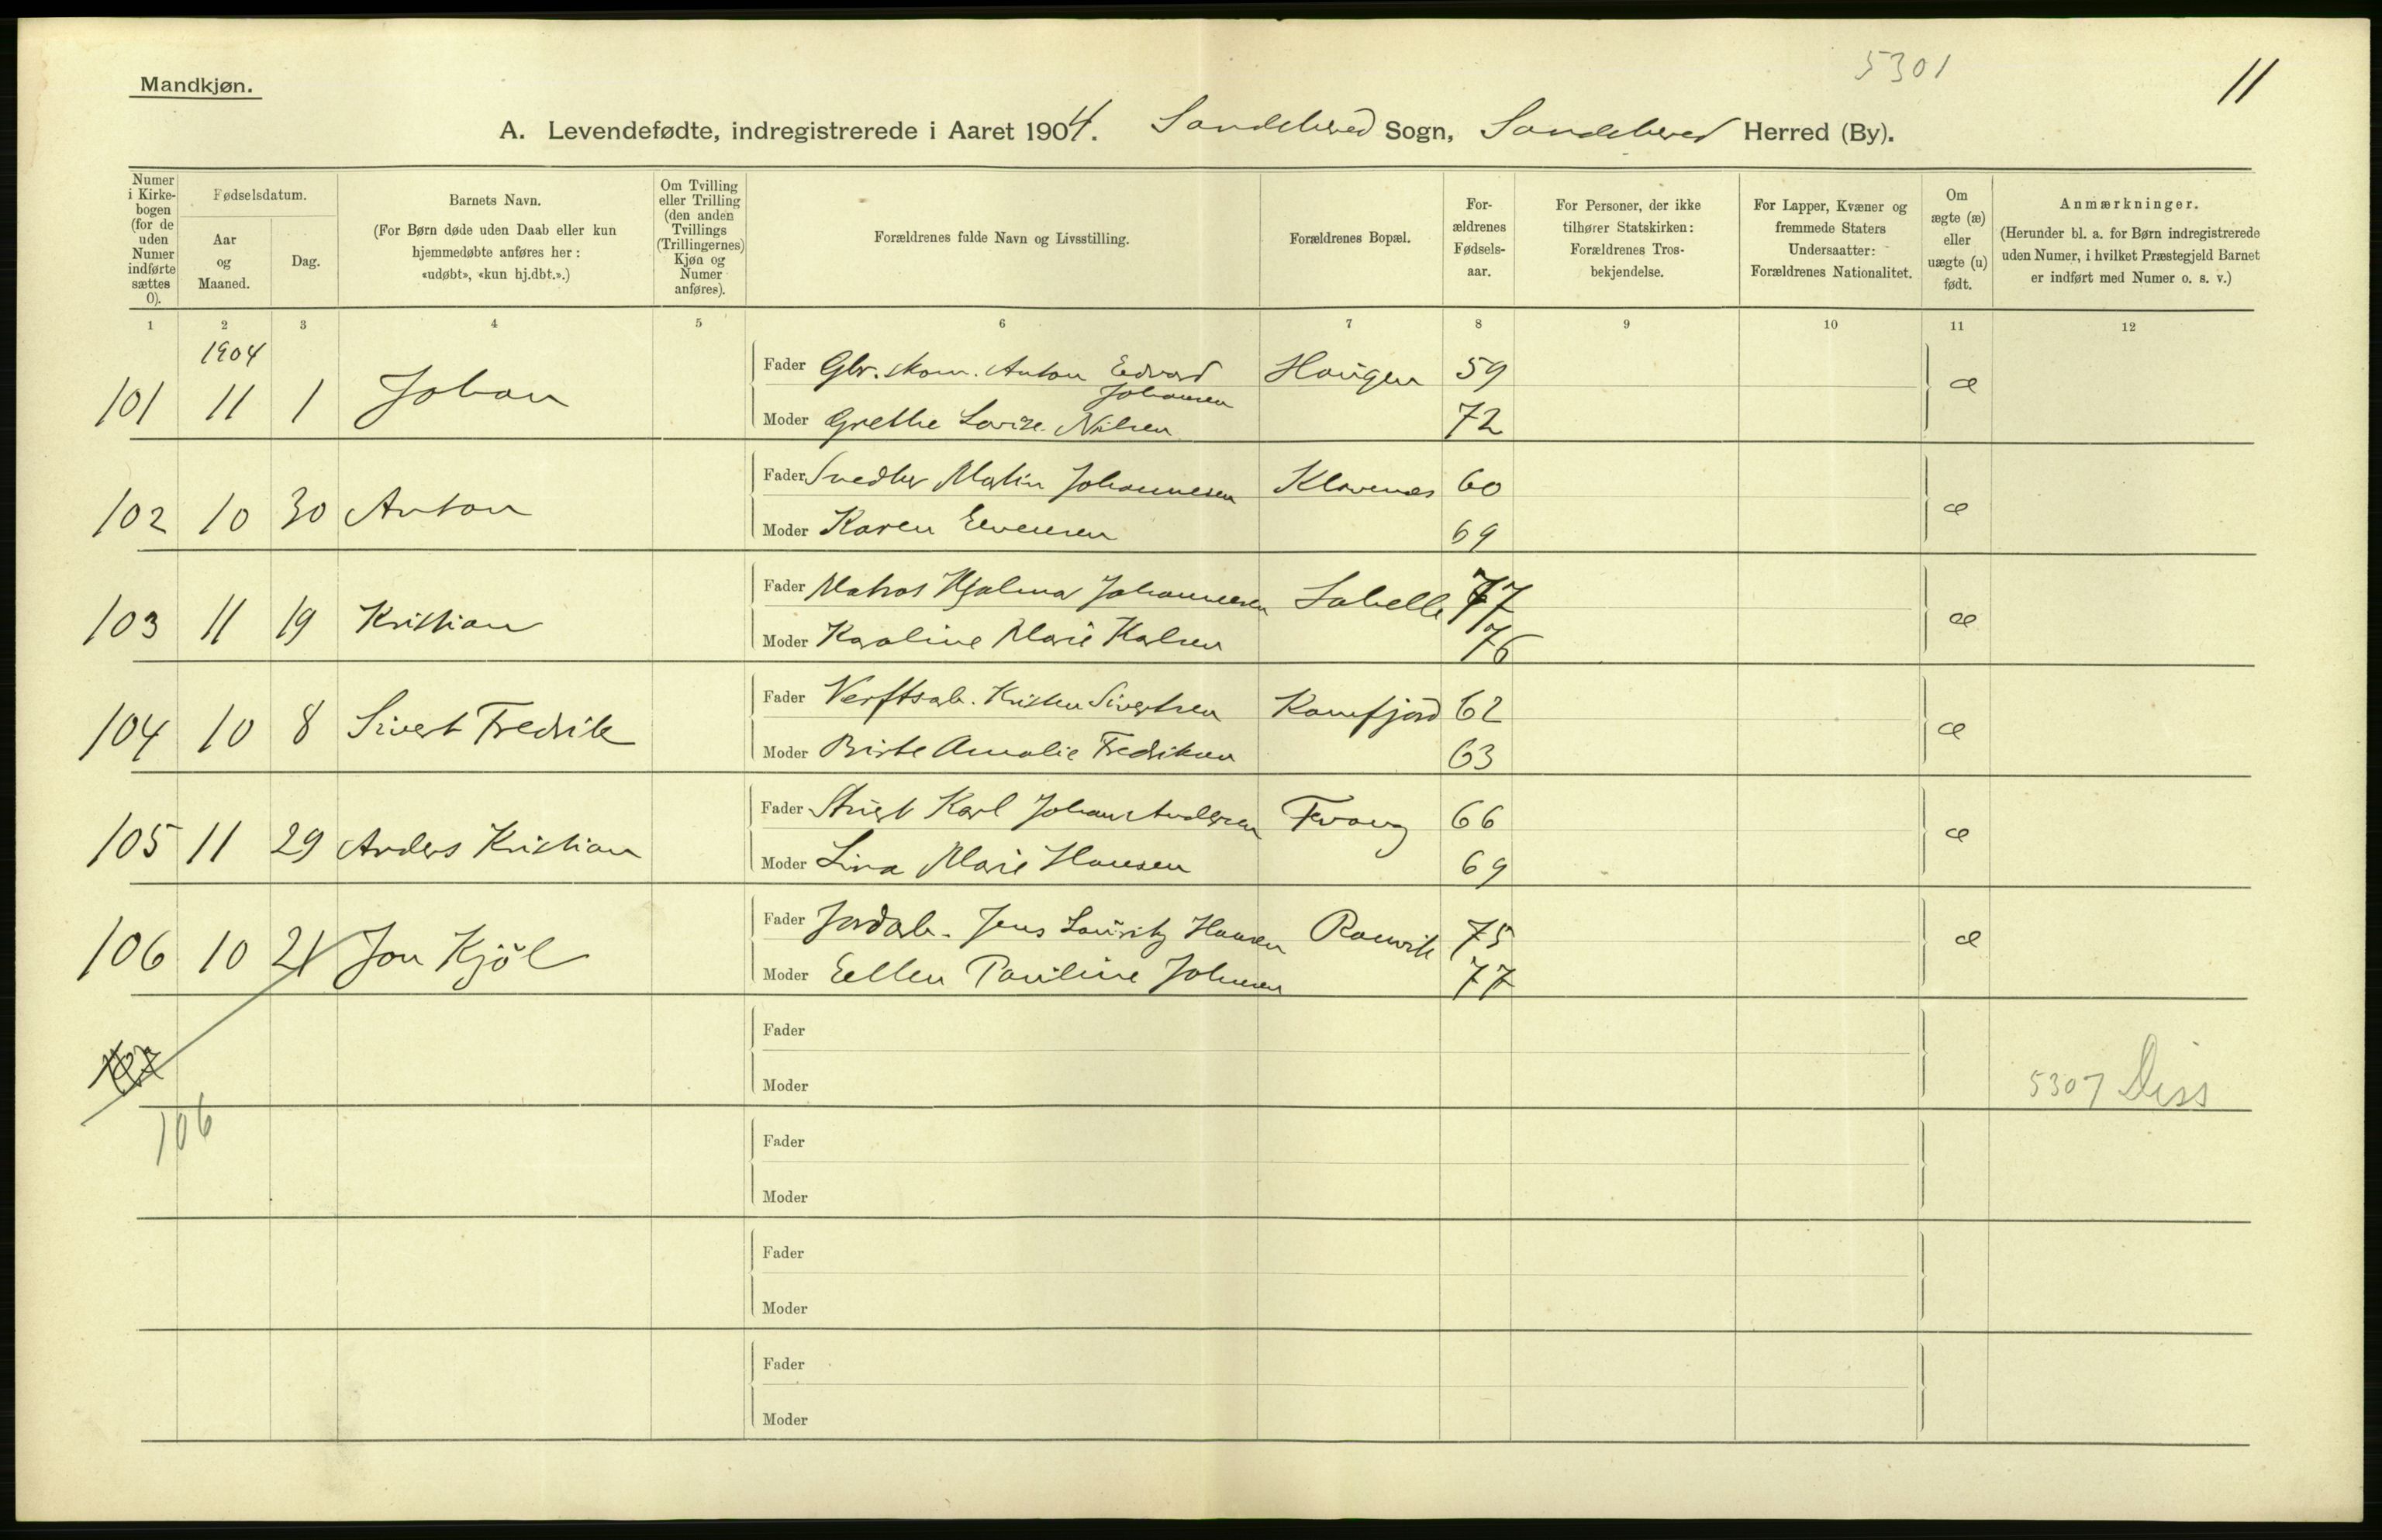 5301
11
Mandkjøn.
A. Levendefødte, indregistrerede i Aaret 1904. Sandeherred Sogn, Sandeherred Herred (By).
Numer i Kirkebogen (for de uden Numer indførte sættes 0).
Fødselsdatum.
Aar og Maaned.
Dag.
Barnets Navn.
(For Børn døde uden Daab eller kun hjemmedøbte anføres her: «udøbt», «kun hj.dbt.».)
Om Tvilling eller Trilling (den anden Tvillings (Trillingernes) Kjøn og Numer anføres).
Forældrenes fulde Navn og Livsstilling.
Forældrenes Bopæl.
Forældrenes Fødselsaar.
For Personer, der ikke tilhører Statskirken: Forældrenes Trosbekjendelse.
For Lapper, Kvæner og fremmede Staters Undersaatter: Forældrenes Nationalitet.
Om ægte (æ) eller uægte (u) født.
Anmærkninger.
(Herunder bl. a. for Børn indregistrerede uden Numer, i hvilket Præstegjeld Barnet er indført med Numer o. s. v.)
1 2 3 4 5 6 7 8 9 10 11 12
1904
101 11 1 Johan Fader Gbr. skom. Anton Edvard Johansen Haugen 59 æ
Moder Grethe Lovise Nilsen 72
102 10 30 Anton Fader Snedker Martin Johannesen Klavenes 60 æ
Moder Karen Evensen 69
103 11 19 Kristian Fader Matros Hjalmar Johannesen 77 æ
Moder Karoline Marie Karlsen 76
104 10 8 Sivert Fredrik Fader Verftsarb. Kristen Sivertsen Kamfjord 62 æ
Moder Birte Amalie Fredriksen 63
105 11 29 Anders Kristian Fader Karl Johan Andersen Fevang 66 æ
Moder Lina Marie Hansen 69
106 10 21 Jon Kjöl Fader Jordarb. Jens Lauritz Hansen Ranvik 75 æ
Moder Ellen Pauline Johnsen 77
107 Fader
Moder 5307 Diss
106
Fader
Moder
Fader
Moder
Fader
Moder